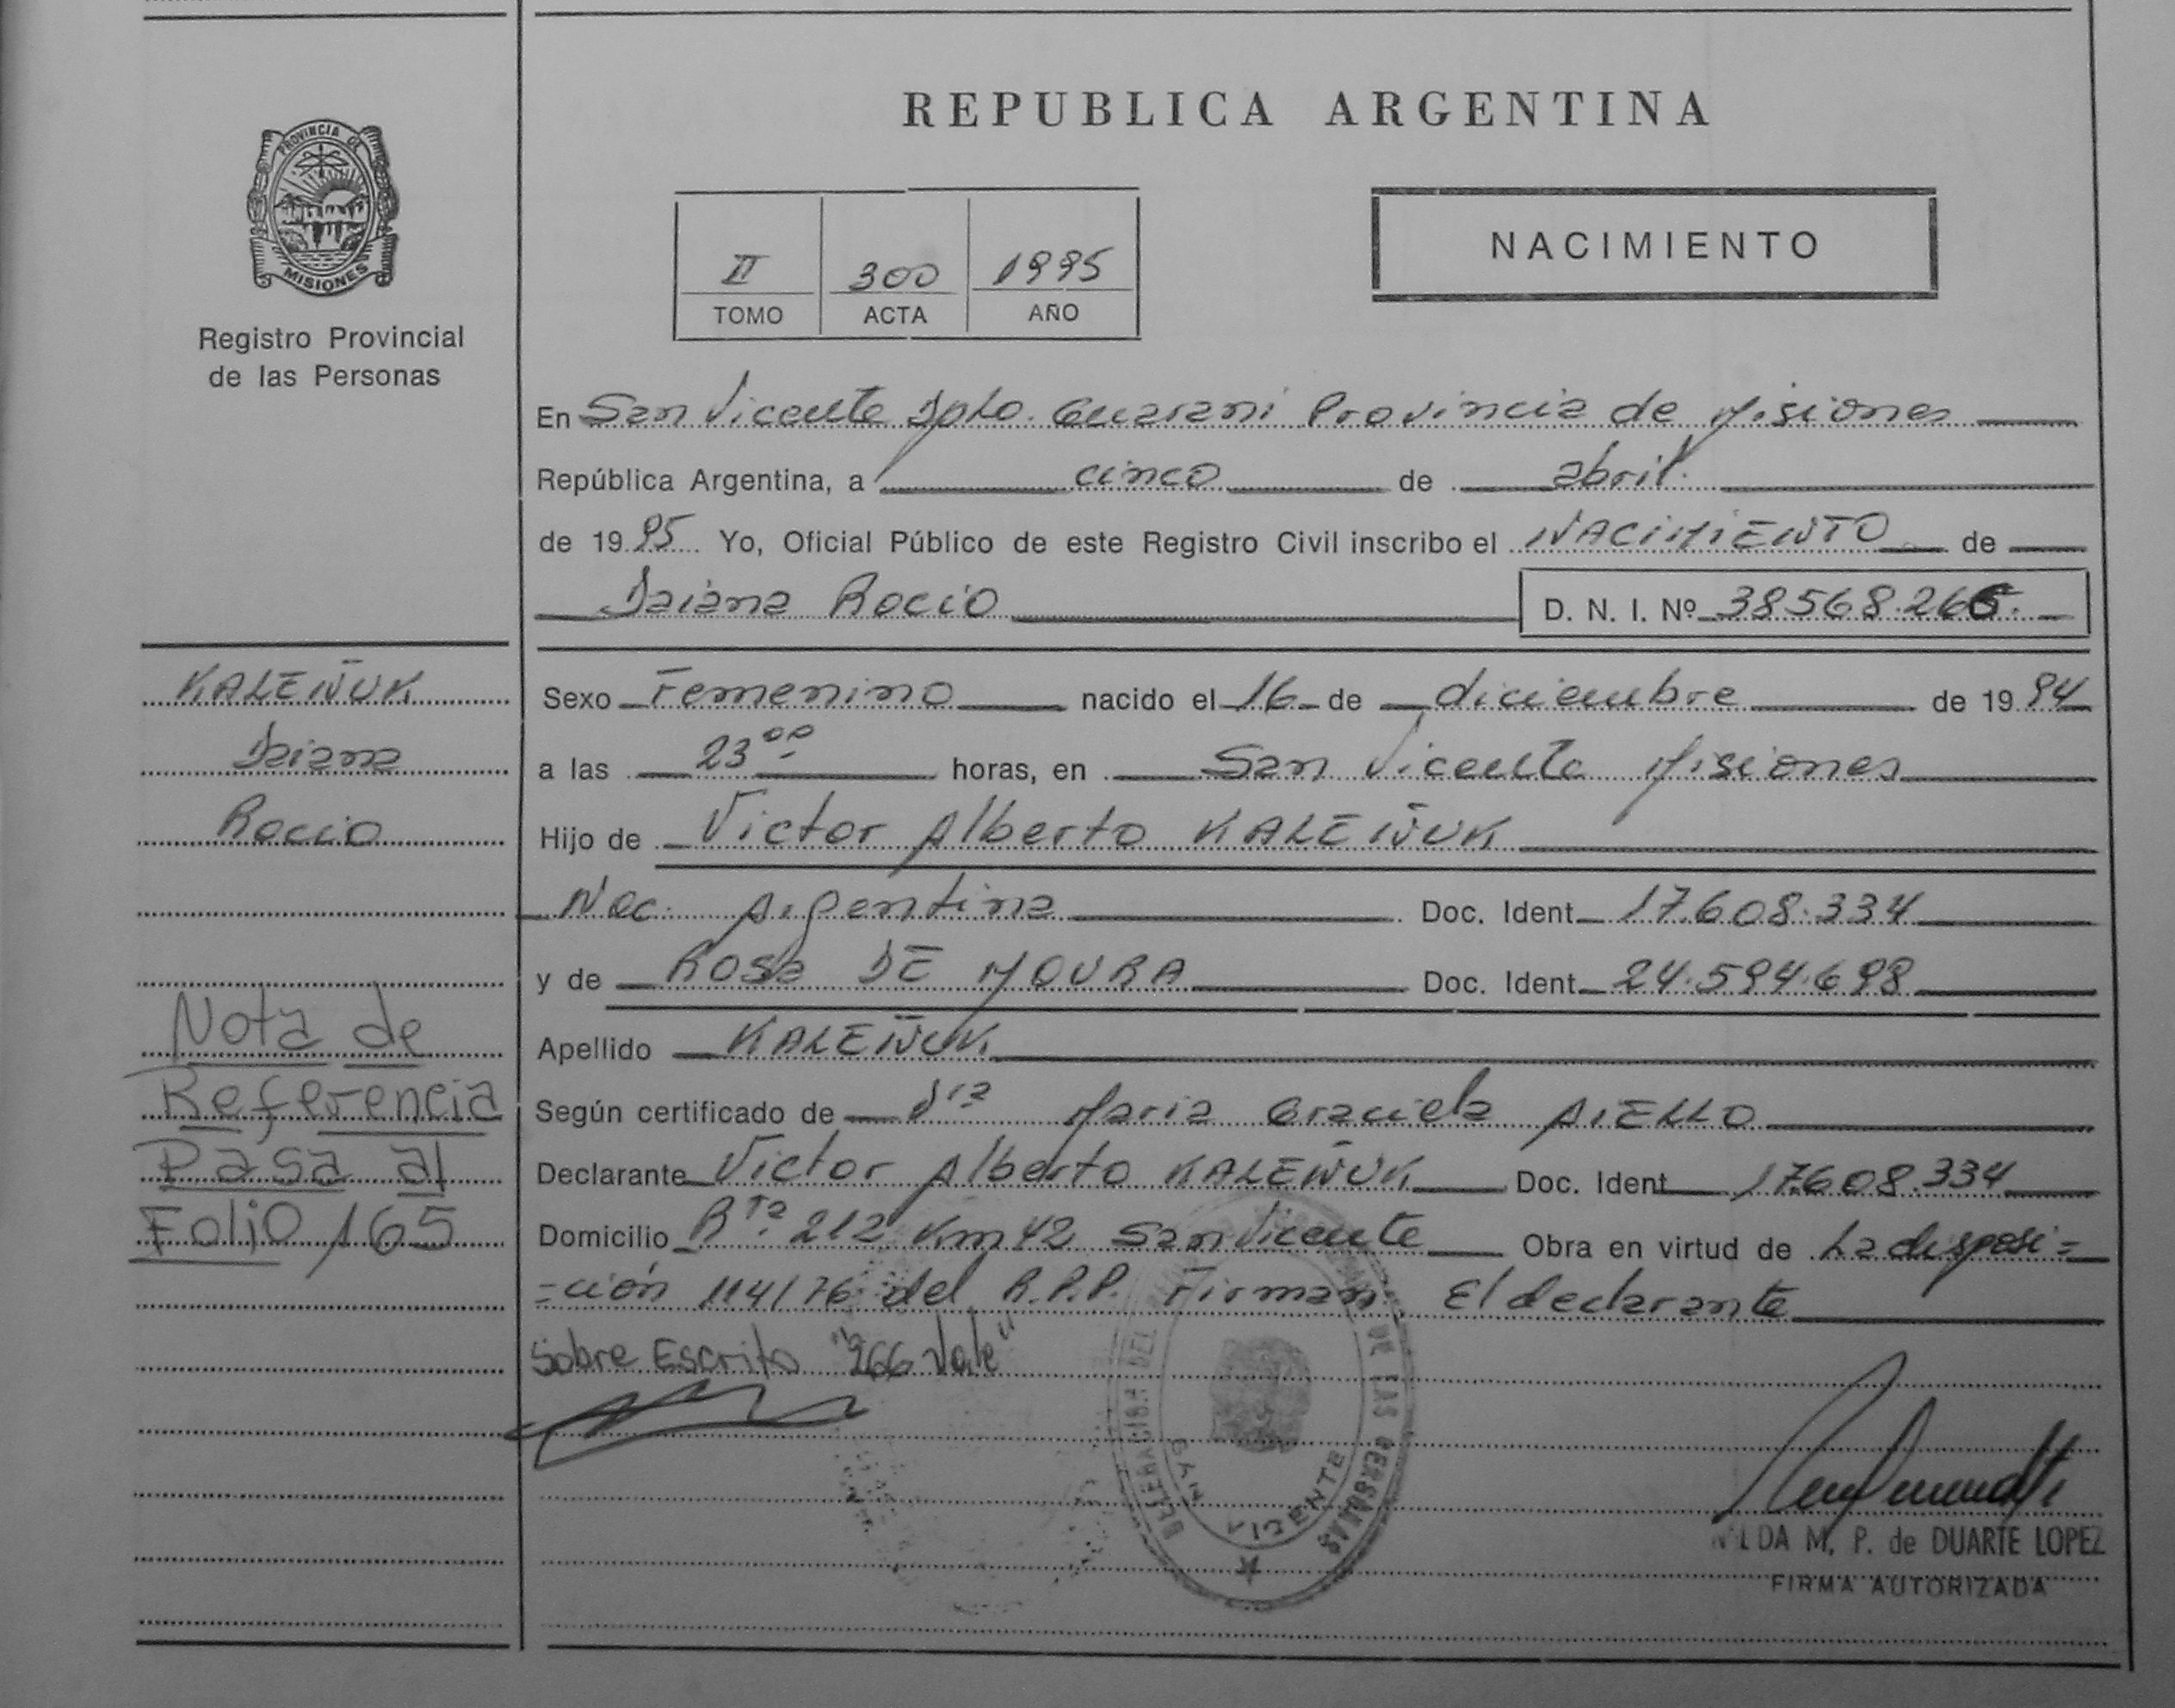 REPUBLICA ARGENTINA
PROVINCIA DE
MISIONES
Registro Provincial
de las Personas
II 300 1995
TOMO ACTA AÑO
NACIMIENTO
En San Vicente Dpto. Guarani Provincia de Misiones
República Argentina, a cinco de abril.
de 1995 Yo, Oficial Público de este Registro Civil inscribo el NACIMIENTO de
Daiana Rocio D. N. I. Nº 38568.266.
KALEÑUK
Daiana
Rocio
Sexo Femenino nacido el 16 de diciembre de 1994
a las 23 00 horas, en San Vicente Misiones
Hijo de Victor Alberto KALEÑUK
Nac. Argentina Doc. Ident. 17.608.334
y de Rosa DE MOURA Doc. Ident. 24.594.698
Apellido KALEÑUK
Según certificado de Dra Maria Graciela AIELLO
Declarante Victor Alberto KALEÑUK Doc. Ident. 17.608.334
Domicilio Rta. 212 Km 42 San Vicente Obra en virtud de La disposi=
=ción 114/76 del R.P.P. Firman: El declarante
Sobre Escrito "266 Vale"
Nota de
Referencia
Pasa al
Folio 165
DE LAS PERSONAS
SAN VICENTE
M. P. de DUARTE LOPEZ
FIRMA AUTORIZADA